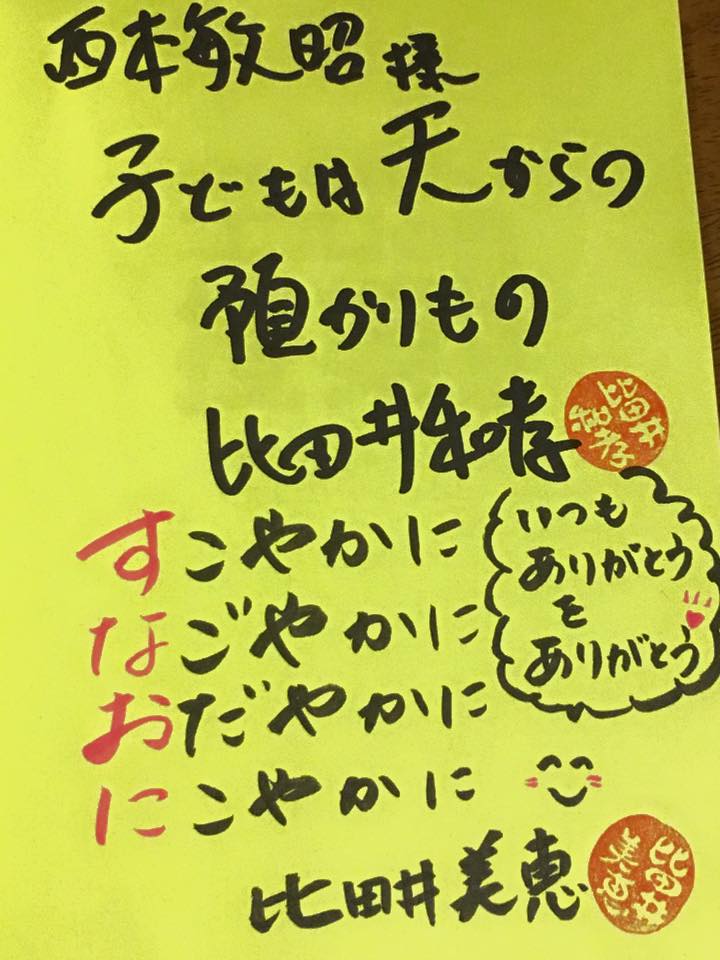 西本敏昭様
子どもは天からの
預かりもの
比田井和孝
比田井和孝
すこやかに
なごやかに
おだやかに
にこやかに
いつも
ありがとう
を
ありがとう
比田井美恵
比田井美恵